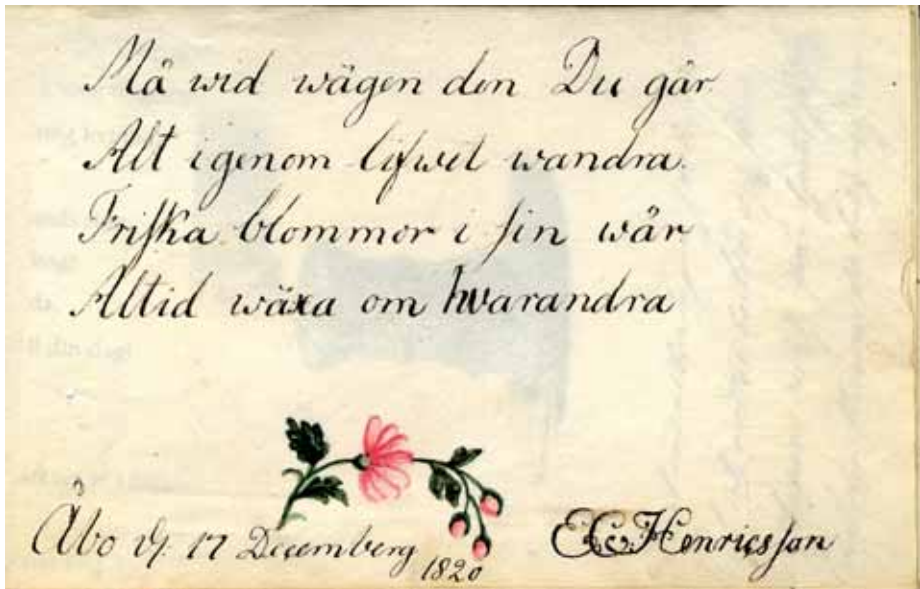 Må wid wägen den Du går
Alt igenom lifwet wandra.
Friska blommor i sin wår
Altid wäxa om hvarandra
Åbo d. 17 Decemberg 1820
E C Henricsson